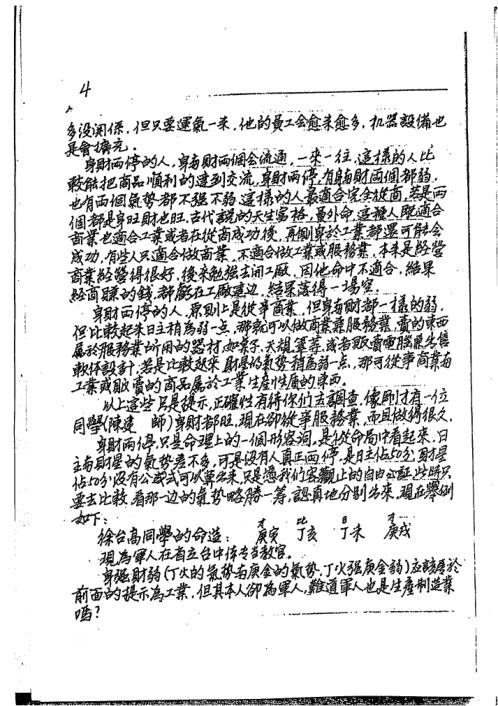 4
多没関係，但只要運氣一来，他的員工会愈来愈多，机器設備也
是會擴充。
身財兩停的人，身与財兩個会流通，一來一往，这樣的人比
較能把商品順利的達到交流，身財兩停，有身財兩個都弱，
也有兩個氣勢都不强不弱，這樣的人最適合完全從商，若是兩
個都是身旺財也旺，古代説的天生富格，最外命，這種人既適合
商業也適合工業或者在從商成功後，再側身於工業都還可能会
成功，有些人只適合做商業，不適合做工業或服務業，本来是經營
商業經營得很好，後来勉强去闭工廠，因他命中不適合，結果
經商賺的錢，都虧在工廠這边，結果落得一場空。
身財兩停的人，原則上是從事商業，但身与財都一樣的弱，
但比較起来日主稍為弱一点，那就可以做商業兼服務業，賣的東西
屬於服務業所用的器材，如桌子、天視筆等，或者販賣電腦兼售
軟体設計，若是比較起来財星的氣勢稍為弱一点，那可從事商業与
工業或販賣的商品屬於工業生產性質的東西。
以上這些只是提示，正確性有待你们去調查，像刚才有一位
同學（陳建 師）身財都旺，現在卻從事服務業，而且做得很久，
身財兩停，只是命理上的一個形容詞，是從命局中看起来，日
主与財星的氣勢差不多，可是没有人真正兩停，是日主佔50分，財星
佔50分没有公式可以算出来，只是憑我们客觀上的自由心証，此時只
要去比較，看那一边的氣勢略勝一籌，認真地分别出来，現在舉例
如下：
徐台高同學的命造：庚寅 丁亥 丁未 庚戌
現為軍人在省立台中体專当教官。
身强財弱（丁火的氣勢与庚金的氣勢，丁火强庚金弱）应該屬於
前面的提示為工業，但其本人卻為軍人，難道軍人也是生產制造業
嗎？